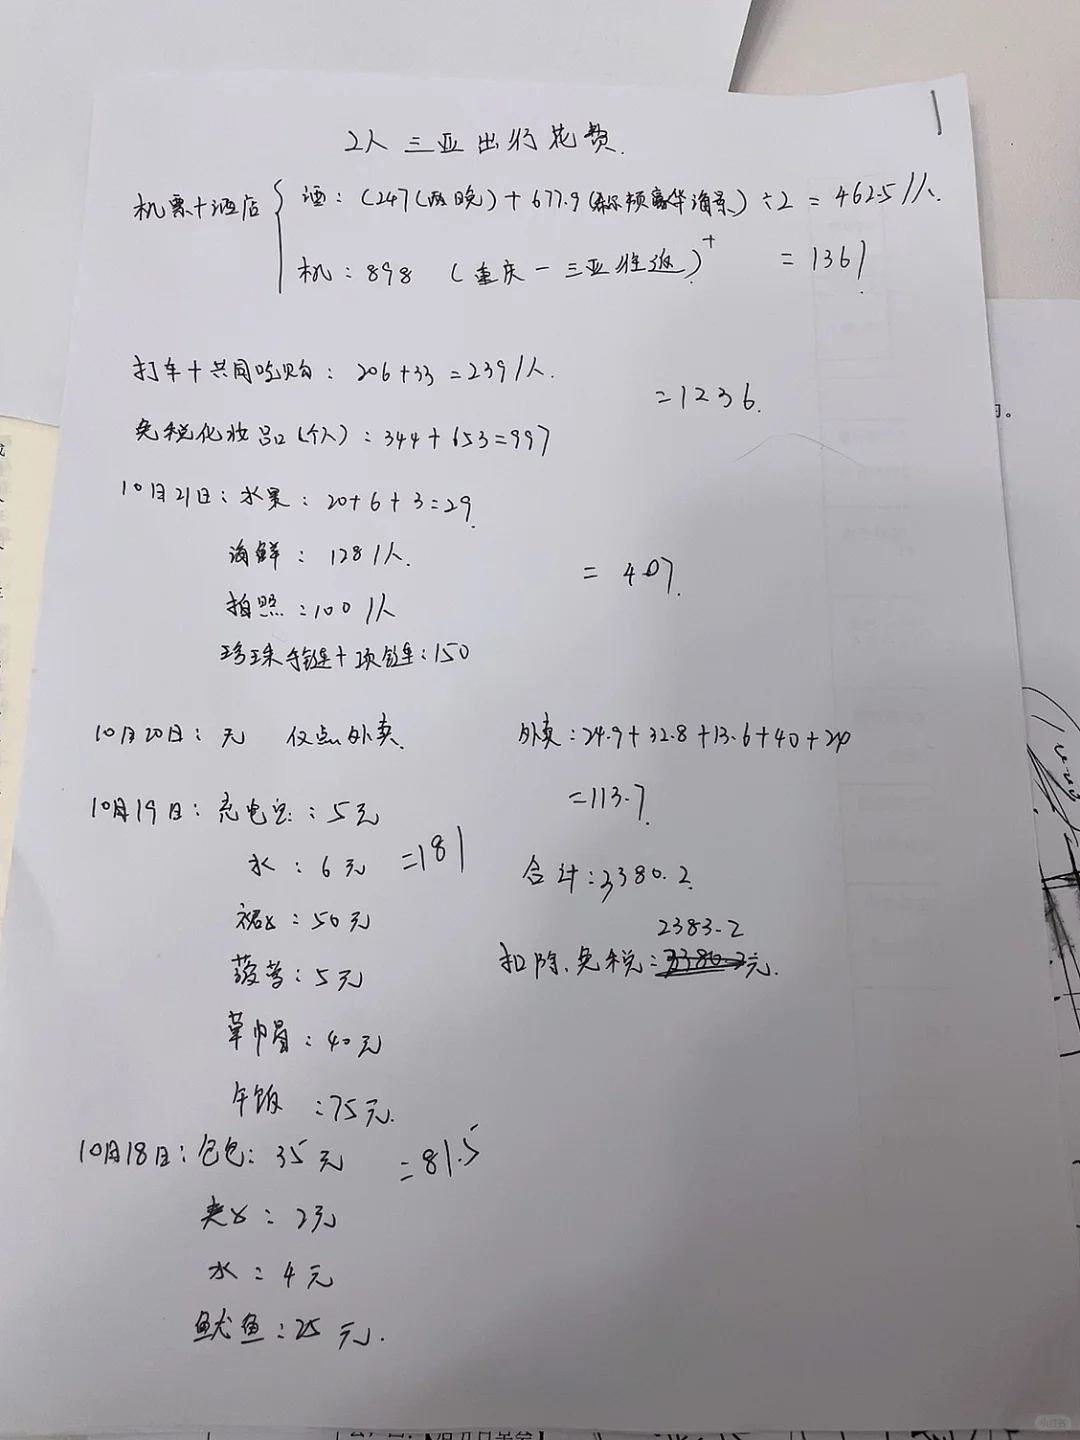 2人三亚出行花费.
机票+酒店
酒：(247(两晚)+677.9(希尔顿豪华海景)÷2 = 462.5/人.
机：898 (重庆一三亚往返)+ = 1361.
打车+共同吃购：206+33=239/人.
=1236.
免税化妆品(个人)：344+653=997
10月21日：水果：20+6+3=29.
海鲜：128/人.
= 407.
拍照：100/人
珍珠手链+项链：150
10月20日：无 仅点外卖.
外卖：24.9+32.8+13.6+40+20
=113.7.
10月19日：充电宝：5元
水：6元 =181
合计：3380.2.
裙子：50元
2383.2
扣除.免税：3380.2元.
菠萝：5元
草帽：40元
午饭：75元.
10月18日：包包：35元 =81.5
夹子：2元
水：4元
鱿鱼：25元.